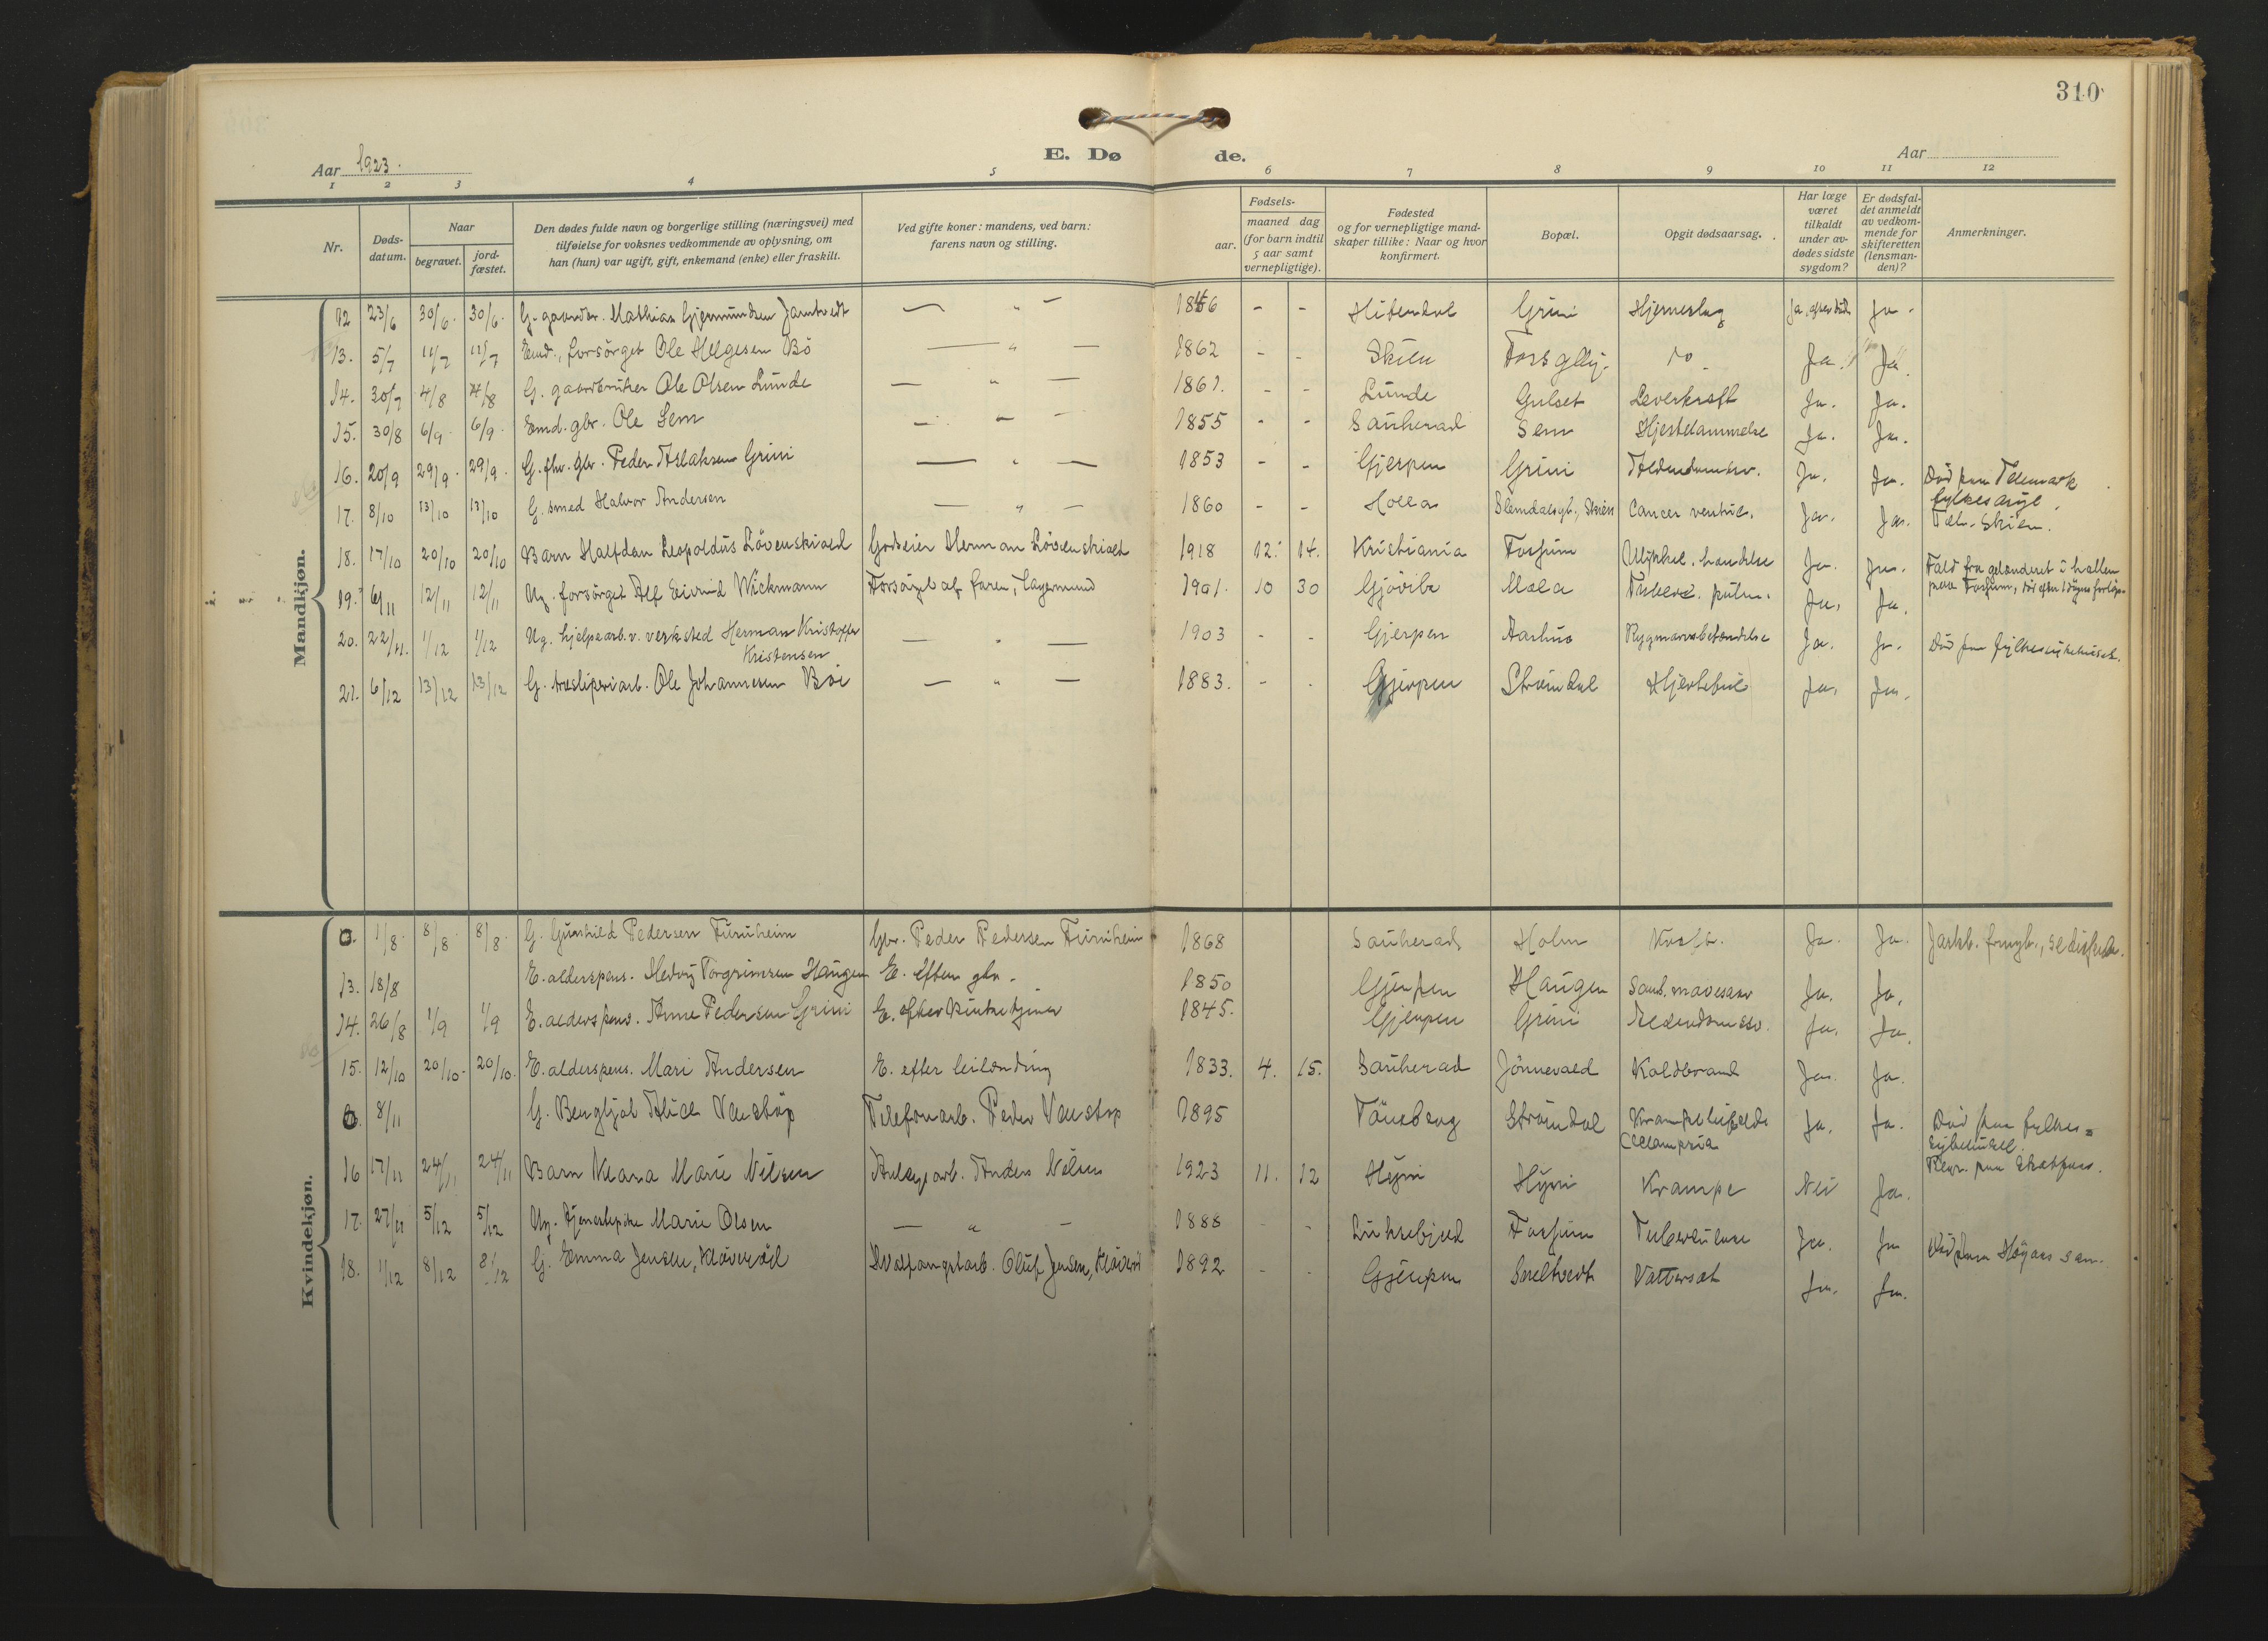 310
Aar 1923.
E. Dø de.
Aar
1 2 3 4 5 6 7 8 9 10 11 12
Nr.
Døds-
datum.
Naar
begravet.
jord-
fæstet.
Den dødes fulde navn og borgerlige stilling (næringsvei) med
tilføielse for voksnes vedkommende av oplysning, om
han (hun) var ugift, gift, enkemand (enke) eller fraskilt.
Ved gifte koner: mandens, ved barn:
farens navn og stilling.
Fødsels-
aar.
maaned dag
(for barn indtil
5 aar samt
vernepligtige).
Fødested
og for vernepligtige mand-
skaper tillike: Naar og hvor
konfirmert.
Bopæl.
Opgit dødsaarsag.
Har læge
været
tilkaldt
under av-
dødes sidste
sygdom?
Er dødsfal-
det anmeldt
av vedkom-
mende for
skifteretten
(lensman-
den)?
Anmerkninger.
Mandkjøn.
12 23/6 30/6. 30/6. G. gaardbr. Mathias Gjermundsen Jamtvedt — " — 1846 - - Hitterdal Grini Hjerneslag Ja, efter død Ja.
13. 5/7 11/7 11/7 Emd., forsörget Ole Helgesen Bö — " — 1862 - - Skien Fossgllj. do Ja. Ja.
14. 30/7 4/8 4/8 G. gaardbruker Ole Olsen Lunde — " — 1861. - - Lunde Gulset Leverkræft Ja. Ja.
15. 30/8 6/9 6/9. Emd. gbr. Ole Sem — " — 1855 - - Sauherad Sem Hjertelammelse Ja. Ja.
16. 20/9 29/9. 29/9. G. fhv. gbr. Peder Aslaksen Grini — " — 1853 - - Gjerpen Grini Alderdomssv. Ja. Ja. Död paa Telemark
fylkes
17. 8/10 13/10 13/10 G. smed Halvor Andersen — " — 1860 - - Holla Blemdalsgt., Skien Cancer ventric. Ja. Ja. Skien.
18. 17/10 20/10 20/10 Barn Halfdan Leopoldus Lövenskiold Godseier Herman Lövenskiold 1918 12. 14. Kristiania Fossum Ulykkel. hændelse Ja. Ja. Fald fra gelænderet i hallen
paa Fossum, död efter 1 dögns forlöp.
19. 6/11 12/11 12/11 Ug. forsörget Alf Eivind Wickmann Forsörget af faren, 1901. 10 30 Gjövik Mæla Tuberc. pulm. Ja. Ja.
20. 22/11. 1/12 1/12 Ug. hjelpearb. v. verksted Herman Kristoffer
Kristensen — " — 1903 - - Gjerpen Aarhus Rygmarvsbetændelse Ja. Ja. Död paa fylkessykehuset.
21. 6/12 13/12 13/12 G. træsliperiarb. Ole Johannesen Böe — " — 1883. - - Gjerpen Strömdal Hjertefeil Ja. Ja.
Kvindekjøn.
1/8. 8/8. 8/8. G. Gunhild Pedersen Furuheim Gbr. Peder Pedersen Furuheim 1868 Sauherad Holm Kræft. Ja. Ja.
13. 18/8 E. alderspens. Hedvig Torgrimsen Haugen E. efter gbr. 1850 Gjerpen Haugen Ja. Ja.
14. 26/8 1/9 1/9 E. alderspens. Anne Pedersen Grini E. efter 1845. Gjerpen Grini Alderdomssv. Ja. Ja.
15. 12/10 20/10. 20/10. E. alderspens. Mari Andersen E. efter leilænding 1833. 4. 15. Sauherad Jönnevald Koldbrand Ja. Ja.
8/11 G. Bergljot Alice Venstöp Telefonarb. Peder Venstöp 1895 Tönsberg Strömdal
Eclampsia Ja. Ja. Död paa fylkes=
sykehuset.
16 17/11 24/11 24/11 Barn Klara Marie Nilsen Anlegsarb. Anders Nilsen 1923 11. 12 Hyni Hyni Krampe Nei Ja.
17. 27/11 5/12 5/12 Ug. tjenestepike Marie Olsen — " — 1888 - - Luksefjell Fossum Tuberculose Ja. Ja Död paa Höyaas san.
18. 1/12 8/12 8/12 G. Emma Jensen, Klöveröd Hvalfangstarb. Oluf Jensen, Klöveröd 1892 - - Gjerpen Sneltvedt Vattersot Ja. Ja.